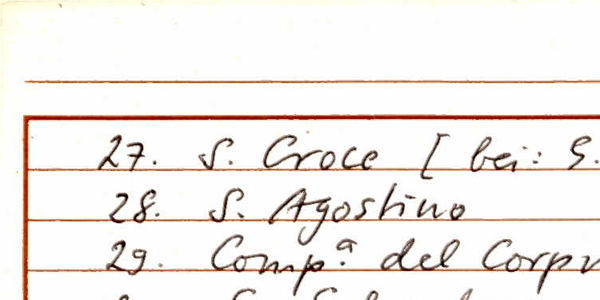 27. S. Croce [ bei: S.
28. S. Agostino
29. Comp.ª del Corpu